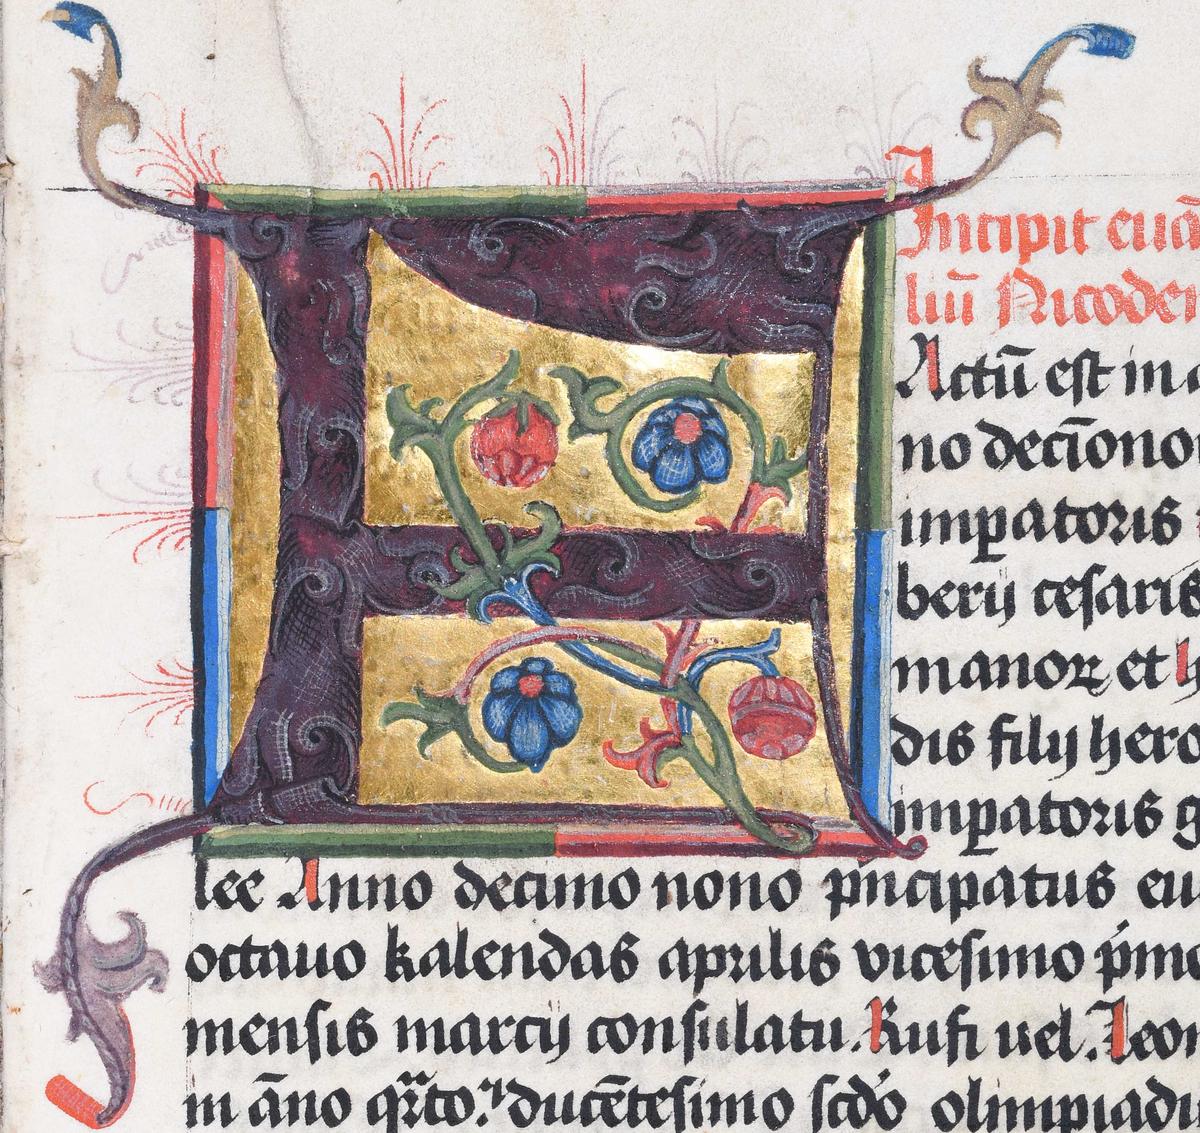 Incipit euā
liū Nicoder
F
Actū est in
no decīono
imꝑatoris
berij cesaris
manoꝝ et h
dis filij hero
imꝑatoris g
lee Anno decimo nono pⁱncipatus eu
octauo kalendas aprilis vicesimo pⁱmo
mensis marcij consulatu. Rufi uel. Leon
in āno qͣrto. ducētesimo scdō olimpiadu